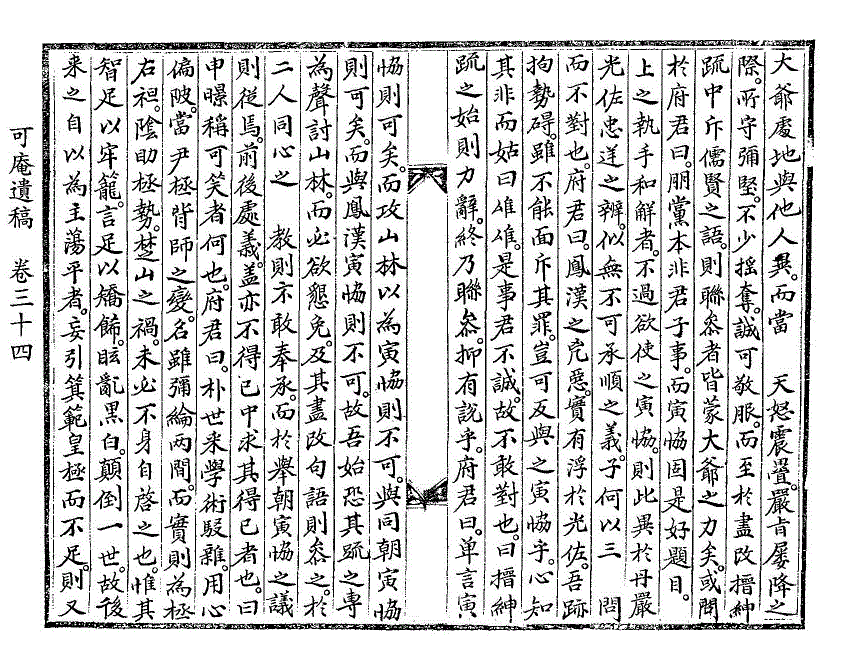 大爺處地與他人異。而當　天怒震疊。嚴旨屢降之
際。所守彌堅。不少搖奪。誠可敬服。而至於盡改搢紳
疏中斥儒賢之語。則聯參者皆蒙大爺之力矣。或問
於府君曰。朋黨本非君子事。而寅恊固是好題目。
上之執手和解者。不過欲使之寅恊。則此異於丹嚴
光佐忠逆之辨。似無不可承順之義。子何以三　問
而不對也。府君曰。鳳漢之凶惡。實有浮於光佐。吾跡
拘勢碍。雖不能面斥其罪。豈可反與之寅恊乎。心知
其非而姑曰唯唯。是事君不誠。故不敢對也。曰搢紳
疏之始則力辭。終乃聯參。抑有說乎。府君曰。单言寅
恊則可矣。而攻山林以爲寅恊則不可。與同朝寅恊
則可矣。而與鳳漢寅恊則不可。故吾始恐其疏之專
爲聲討山林。而必欲懇免。及其盡改句語則參之。於
二人同心之　敎則亦不敢奉承。而於擧朝寅恊之議
則從焉。前後處義。盖亦不得已中求其得已者也。曰
申暻稱可笑者何也。府君曰。朴世采學術駁雜。用心
偏陂。當尹極背師之變。名雖彌綸兩間。而實則爲極
右袒。陰助極勢。楚山之禍。未必不身自啓之也。惟其
智足以牢籠。言足以矯餙。眩亂黑白。顛倒一世。故後
來之自以爲主蕩平者。妄引箕範皇極而不足。則又
可庵遺稿　卷三十四